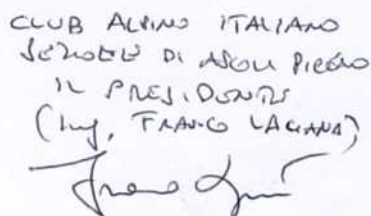 CLUB ALPINO ITALIANO
SEZIONE DI ASCOLI PICENO
IL PRESIDENTE
(Ing. FRANCO LAGANÀ)
Franco